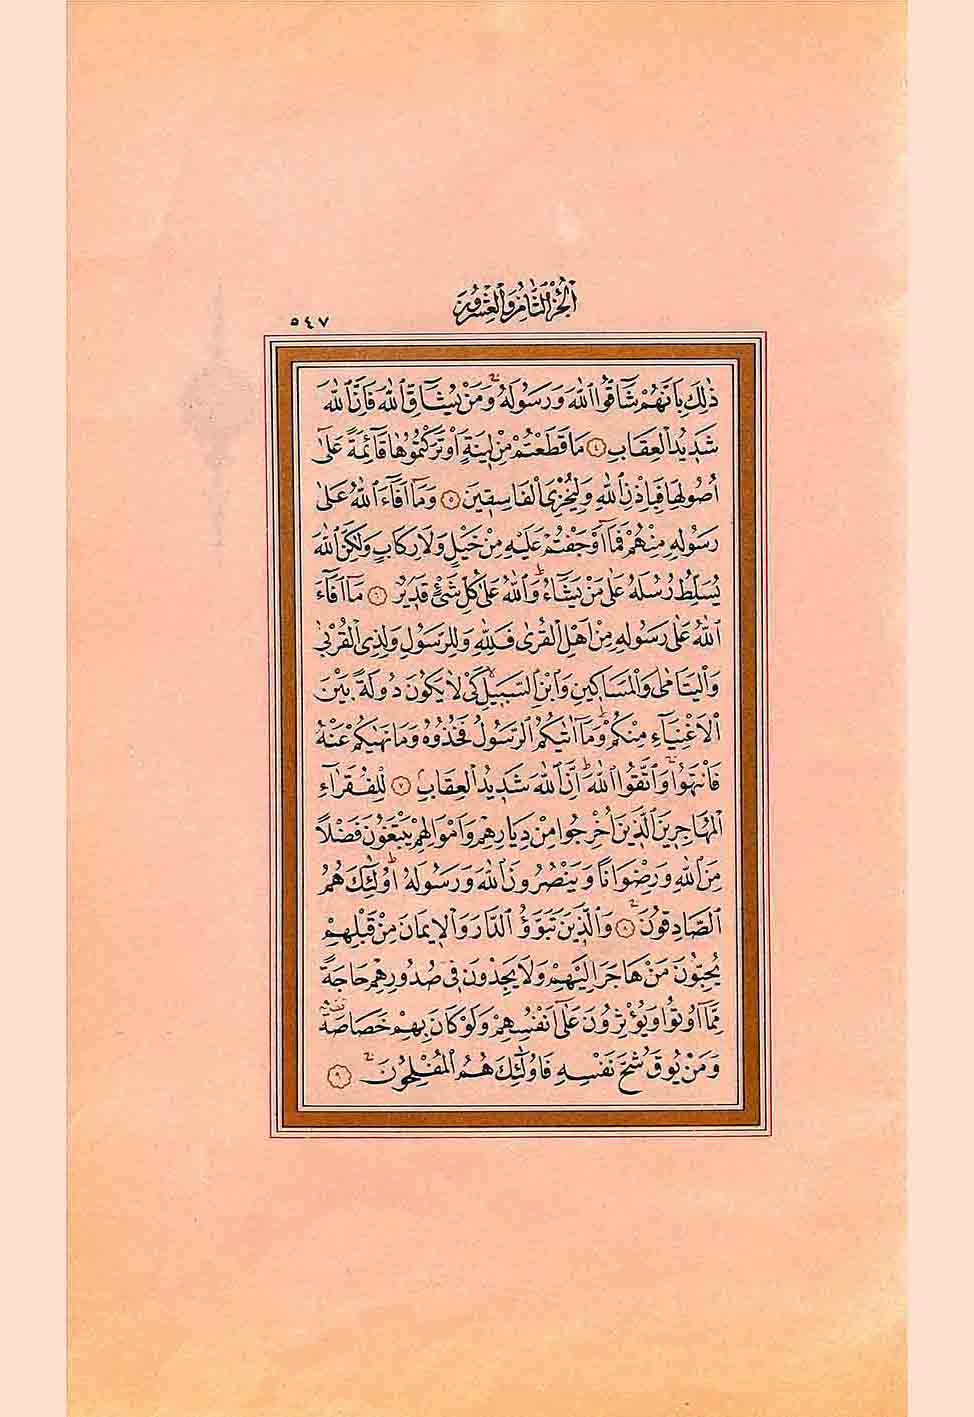 اَلْجُزْءُ الثَّامِنُ وَالْعِشْرُونَ
٥٤٧
ذٰلِكَ بِاَنَّهُمْ شَٓاقُّوا اللّٰهَ وَرَسُولَهُۚ وَمَنْ يُشَٓاقِّ اللّٰهَ فَاِنَّ اللّٰهَ
شَد۪يدُ الْعِقَابِ ﴿٤﴾ مَا قَطَعْتُمْ مِنْ ل۪ينَةٍ اَوْ تَرَكْتُمُوهَا قَٓائِمَةً عَلٰٓى
اُصُولِهَا فَبِاِذْنِ اللّٰهِ وَلِيُخْزِيَ الْفَاسِق۪ينَ ﴿٥﴾ وَمَٓا اَفَٓاءَ اللّٰهُ عَلٰى
رَسُولِه۪ مِنْهُمْ فَمَٓا اَوْجَفْتُمْ عَلَيْهِ مِنْ خَيْلٍ وَلَا رِكَابٍ وَلٰكِنَّ اللّٰهَ
يُسَلِّطُ رُسُلَهُ عَلٰى مَنْ يَشَٓاءُۜ وَاللّٰهُ عَلٰى كُلِّ شَيْءٍ قَد۪يرٌ ﴿٦﴾ مَٓا اَفَٓاءَ
اللّٰهُ عَلٰى رَسُولِه۪ مِنْ اَهْلِ الْقُرٰى فَلِلّٰهِ وَلِلرَّسُولِ وَلِذِي الْقُرْبٰى
وَالْيَتَامٰى وَالْمَسَاك۪ينِ وَابْنِ السَّب۪يلِۙ كَيْ لَا يَكُونَ دُولَةً بَيْنَ
الْاَغْنِيَٓاءِ مِنْكُمْۜ وَمَٓا اٰتٰيكُمُ الرَّسُولُ فَخُذُوهُ وَمَا نَهٰيكُمْ عَنْهُ
فَانْتَهُواۚ وَاتَّقُوا اللّٰهَۜ اِنَّ اللّٰهَ شَد۪يدُ الْعِقَابِۢ ﴿٧﴾ لِلْفُقَرَٓاءِ
الْمُهَاجِر۪ينَ الَّذ۪ينَ اُخْرِجُوا مِنْ دِيَارِهِمْ وَاَمْوَالِهِمْ يَبْتَغُونَ فَضْلًا
مِنَ اللّٰهِ وَرِضْوَانًا وَيَنْصُرُونَ اللّٰهَ وَرَسُولَهُۜ اُو۬لٰٓئِكَ هُمُ
الصَّادِقُونَۚ ﴿٨﴾ وَالَّذ۪ينَ تَبَوَّؤُ الدَّارَ وَالْا۪يمَانَ مِنْ قَبْلِهِمْ
يُحِبُّونَ مَنْ هَاجَرَ اِلَيْهِمْ وَلَا يَجِدُونَ ف۪ي صُدُورِهِمْ حَاجَةً
مِمَّٓا اُو۫تُوا وَيُؤْثِرُونَ عَلٰٓى اَنْفُسِهِمْ وَلَوْ كَانَ بِهِمْ خَصَاصَةٌ
وَمَنْ يُوقَ شُحَّ نَفْسِه۪ فَاُو۬لٰٓئِكَ هُمُ الْمُفْلِحُونَۚ ﴿٩﴾